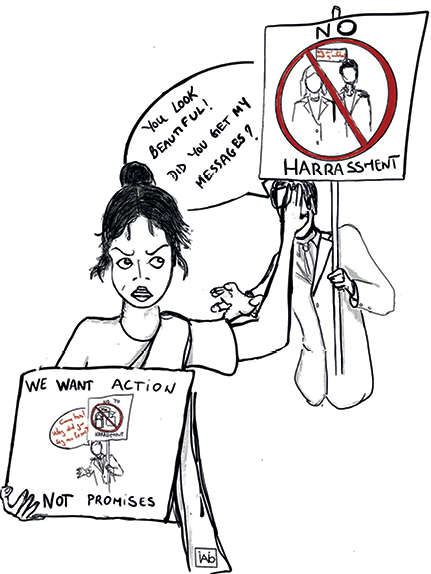 NO
HARRASSMENT
YOU LOOK
BEAUTIFUL!
DID YOU GET MY
MESSAGES?
WE WANT ACTION
NO TO
HARASSMENT
Why did you
NOT PROMISES
iAb